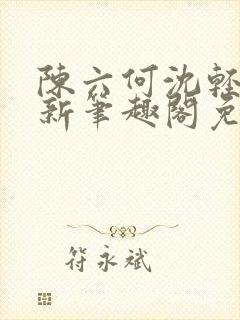 陳六何沈輕
新筆趣閣免
符永斌